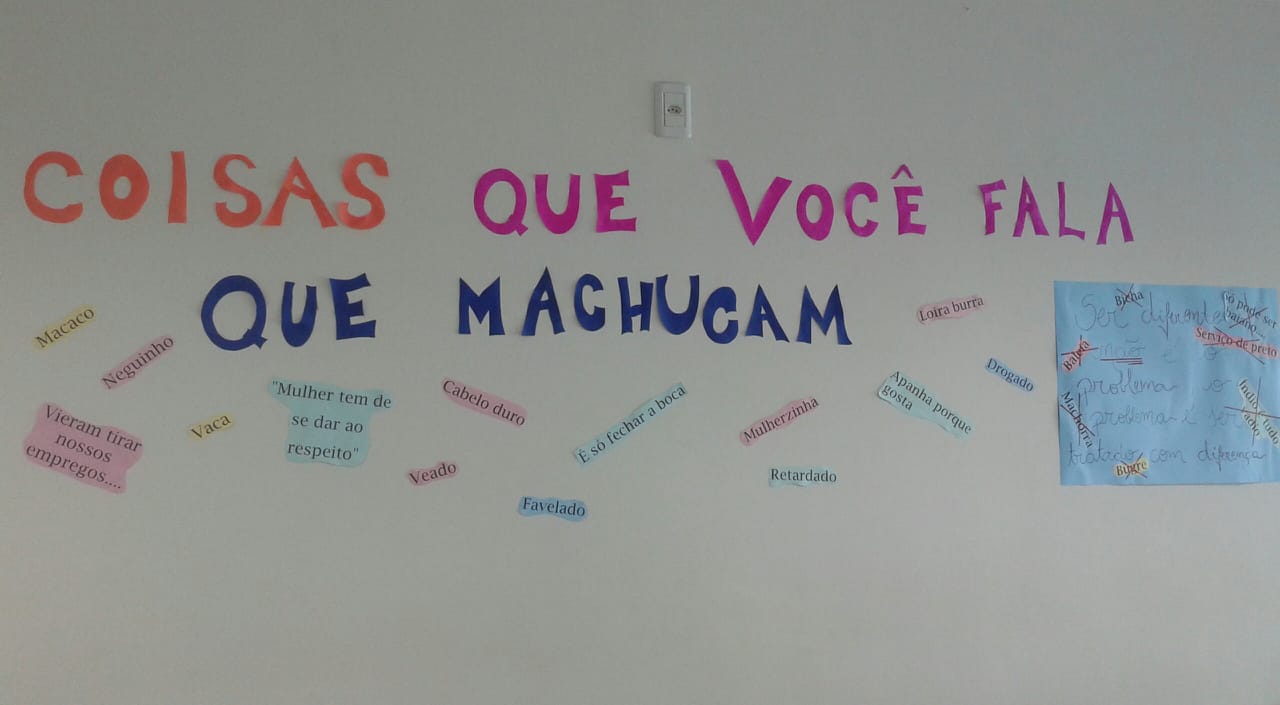 COISAS QUE VOCÊ FALA
QUE MACHUCAM
Macaco
Neguinho
Vieram tirar
nossos
empregos....
Vaca
"Mulher tem de
se dar ao
respeito"
Cabelo duro
Veado
Favelado
É só fechar a boca
Mulherzinha
Retardado
Apanha porque
gosta
Loira burra
Drogado
Bicha
Só podia ser
baiano...
Serviço de preto
Baleia
Machorra
Índio é tudo
Bugre
Ser diferente
não é o
problema o
problema é ser
tratado com diferença